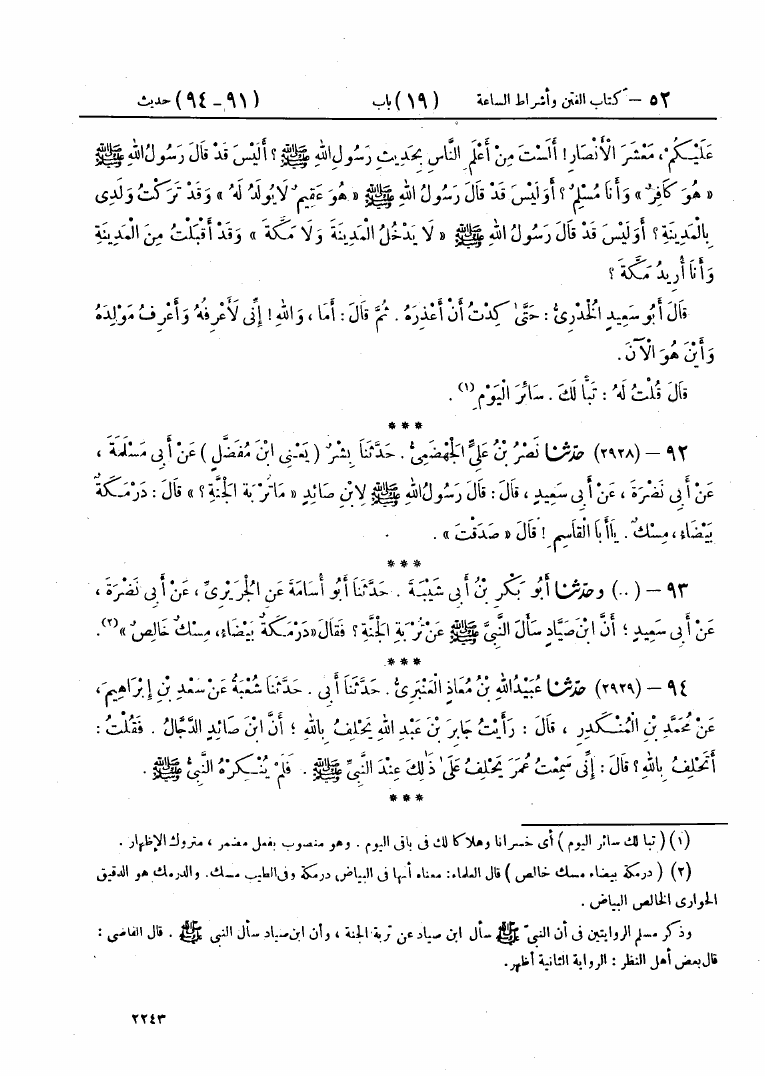 ٥٢ – كتاب الفتن وأشراط الساعة (١٩) باب (٩١-٩٤) حديث
عَلَيْكُمْ، مَعْشَرَ الْأَنْصَارِ! أَلَسْتَ مِنْ أَعْلَمِ النَّاسِ بِحَدِيثِ رَسُولِ اللهِ ﷺ؟ أَلَيْسَ قَدْ قَالَ رَسُولُ اللهِ ﷺ
« هُوَ كَافِرٌ » وَأَنَا مُسْلِمٌ؟ أَوَلَيْسَ قَدْ قَالَ رَسُولُ اللهِ ﷺ « هُوَ عَقِيمٌ لَا يُولَدُ لَهُ » وَقَدْ تَرَكْتُ وَلَدِى
بِالْمَدِينَةِ؟ أَوَلَيْسَ قَدْ قَالَ رَسُولُ اللهِ ﷺ « لَا يَدْخُلُ الْمَدِينَةَ وَلَا مَكَّةَ » وَقَدْ أَقْبَلْتُ مِنَ الْمَدِينَةِ
وَأَنَا أُرِيدُ مَكَّةَ؟
قَالَ أَبُو سَعِيدٍ الْخُدْرِىُّ: حَتَّىٰ كِدْتُ أَنْ أَعْذِرَهُ. ثُمَّ قَالَ: أَمَا، وَاللهِ! إِنِّى لَأَعْرِفُهُ وَأَعْرِفُ مَوْلِدَهُ
وَأَيْنَ هُوَ الْآنَ.
قَالَ قُلْتُ لَهُ: تَبًّا لَكَ. سَائِرَ الْيَوْمِ(١).
***
٩٢ – (٢٩٢٨) حدّثنا نَصْرُ بْنُ عَلِىٍّ الْجَهْضَمِىُّ. حَدَّثَنَا بِشْرٌ (يَعْنِى ابْنَ مُفَضَّلٍ) عَنْ أَبِى مَسْلَمَةَ،
عَنْ أَبِى نَضْرَةَ، عَنْ أَبِى سَعِيدٍ، قَالَ: قَالَ رَسُولُ اللهِ ﷺ لِابْنِ صَائِدٍ « مَا تُرْبَةُ الْجَنَّةِ؟ » قَالَ: دَرْمَكَةٌ
بَيْضَاءُ، مِسْكٌ. يَا أَبَا الْقَاسِمِ! قَالَ « صَدَقْتَ ».
***
٩٣ – (..) وحدّثنا أَبُو بَكْرِ بْنُ أَبِى شَيْبَةَ. حَدَّثَنَا أَبُو أُسَامَةَ عَنِ الْجُرَيْرِىِّ، عَنْ أَبِى نَضْرَةَ،
عَنْ أَبِى سَعِيدٍ؛ أَنَّ ابْنَ صَيَّادٍ سَأَلَ النَّبِىَّ ﷺ عَنْ تُرْبَةِ الْجَنَّةِ؟ فَقَالَ « دَرْمَكَةٌ بَيْضَاءُ، مِسْكٌ خَالِصٌ »(٢).
***
٩٤ – (٢٩٢٩) حدّثنا عُبَيْدُ اللهِ بْنُ مُعَاذٍ الْعَنْبَرِىُّ. حَدَّثَنَا أَبِى. حَدَّثَنَا شُعْبَةُ عَنْ سَعْدِ بْنِ إِبْرَاهِيمَ،
عَنْ مُحَمَّدِ بْنِ الْمُنْكَدِرِ، قَالَ: رَأَيْتُ جَابِرَ بْنَ عَبْدِ اللهِ يَحْلِفُ بِاللهِ؛ أَنَّ ابْنَ صَائِدٍ الدَّجَّالُ. فَقُلْتُ:
أَتَحْلِفُ بِاللهِ؟ قَالَ: إِنِّى سَمِعْتُ عُمَرَ يَحْلِفُ عَلَىٰ ذَٰلِكَ عِنْدَ النَّبِىِّ ﷺ. فَلَمْ يُنْكِرْهُ النَّبِىُّ ﷺ.
***
(١) (تبا لك سائر اليوم) أى خسرانا وهلاكا لك فى باقى اليوم. وهو منصوب بفعل مضمر، متروك الإظهار.
(٢) (درمكة بيضاء مسك خالص) قال العلماء: معناه أنها فى البياض درمكة وفى الطيب مسك. والدرمك هو الدقيق
الحوارى الخالص البياض.
وذكر مسلم الروايتين فى أن النبىّ ﷺ سأل ابن صياد عن تربة الجنة، وأن ابن صياد سأل النبى ﷺ. قال القاضى:
قال بعض أهل النظر: الرواية الثانية أظهر.
٢٢٤٣